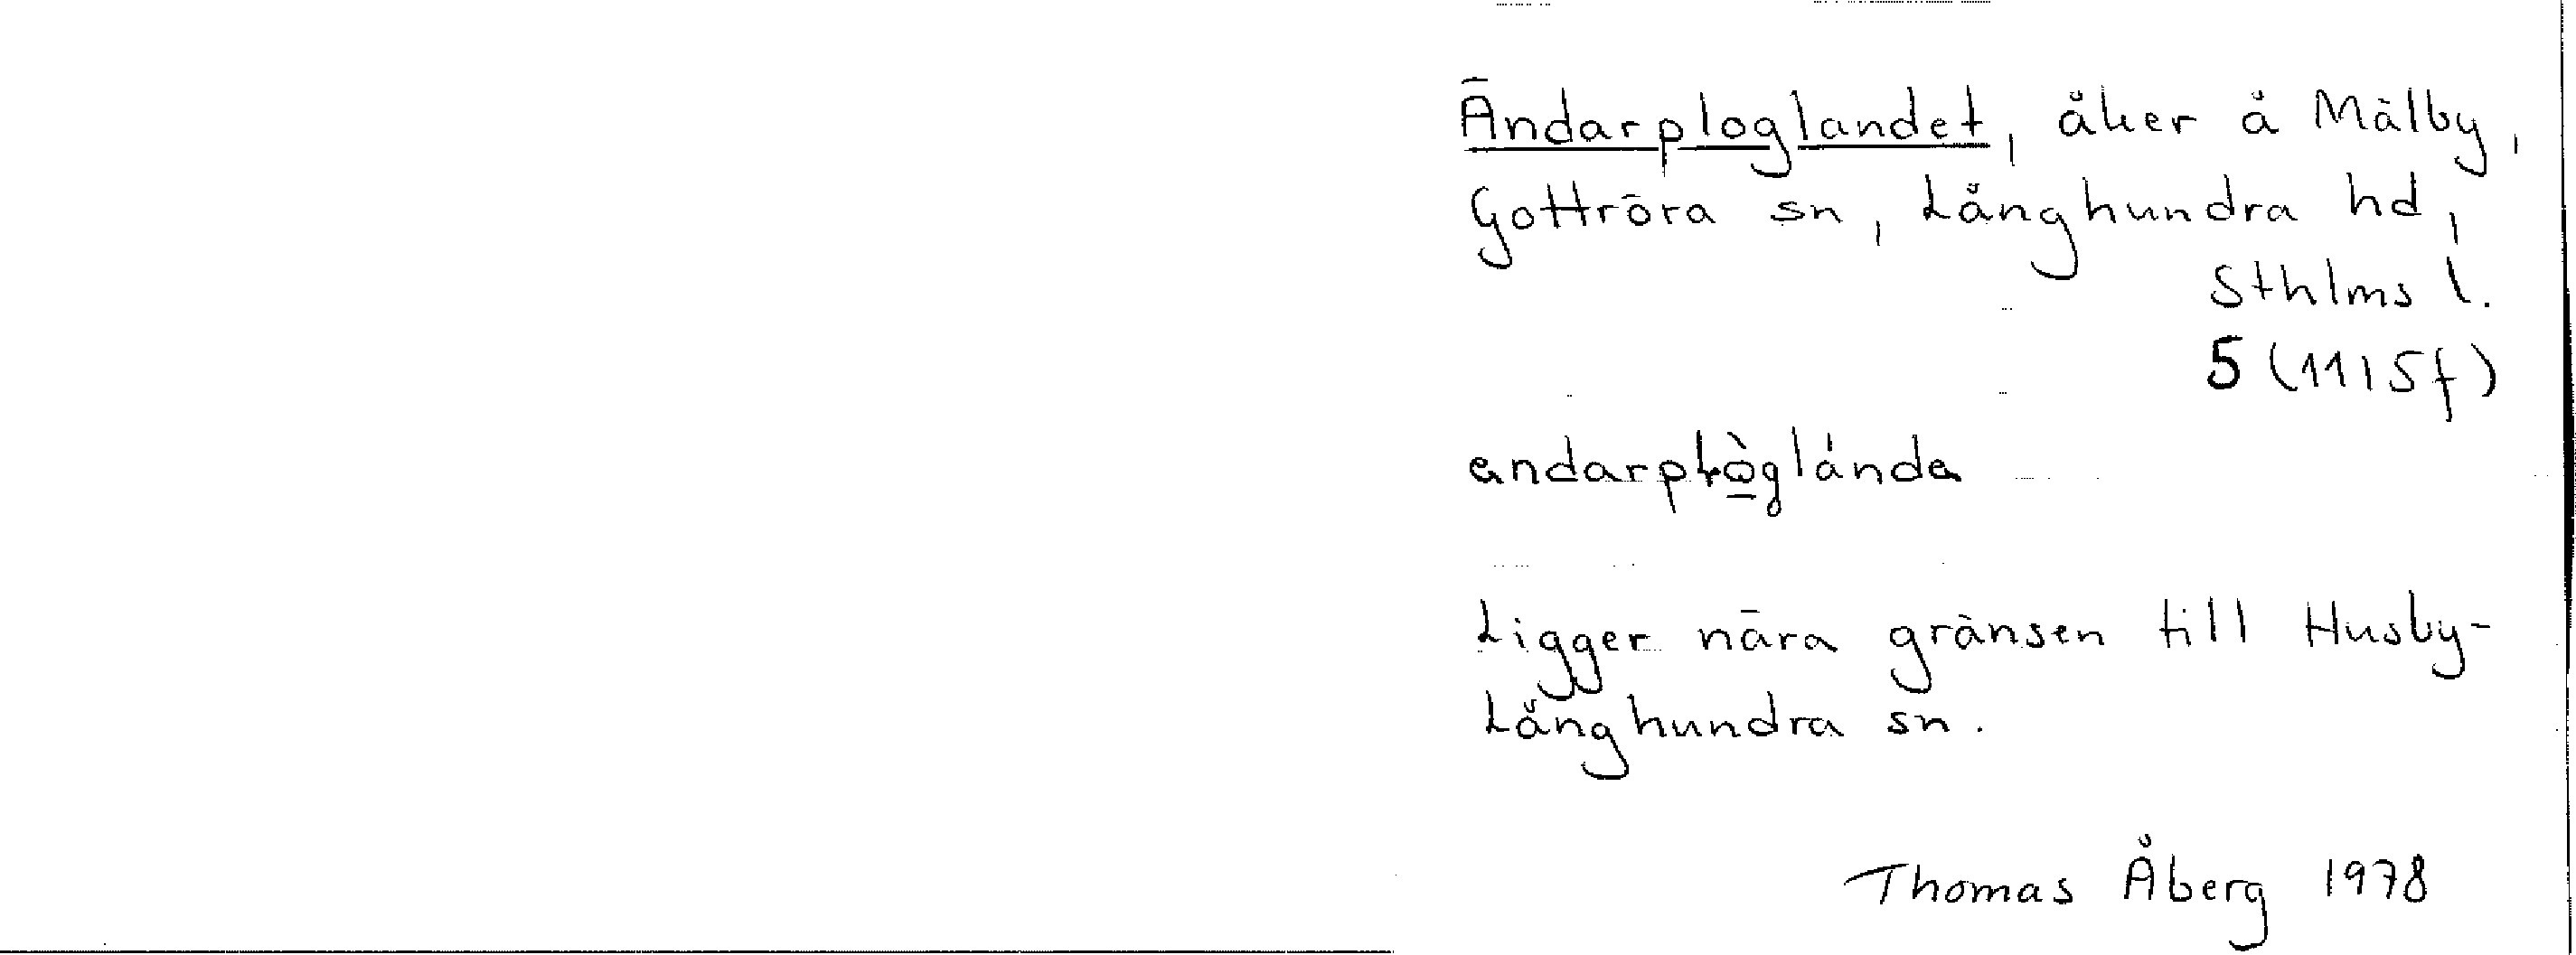 Ändarploglandet, åker å Mälby,
Gottröra sn, Långhundra hd,
Sthlms l.
5 (1115f)
andarplòglánda
Ligger nära gränsen till Husby-
Långhundra sn.
Thomas Åberg 1978